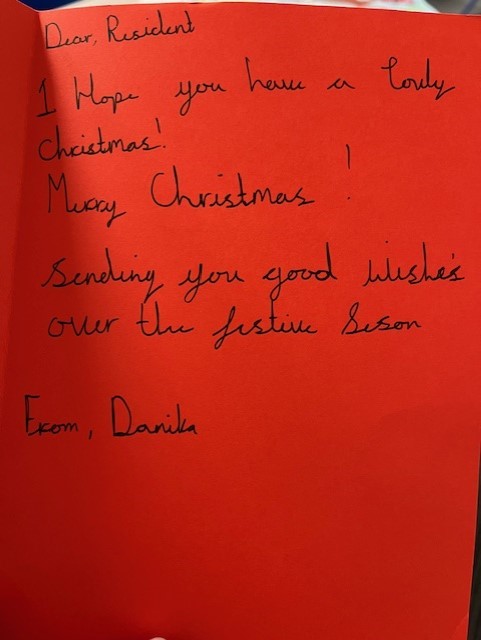 Dear, Resident
I Hope you have a lovly
christmas!
Merry Christmas !
Sending you good wishe's
over the festive Seson
From, Danika